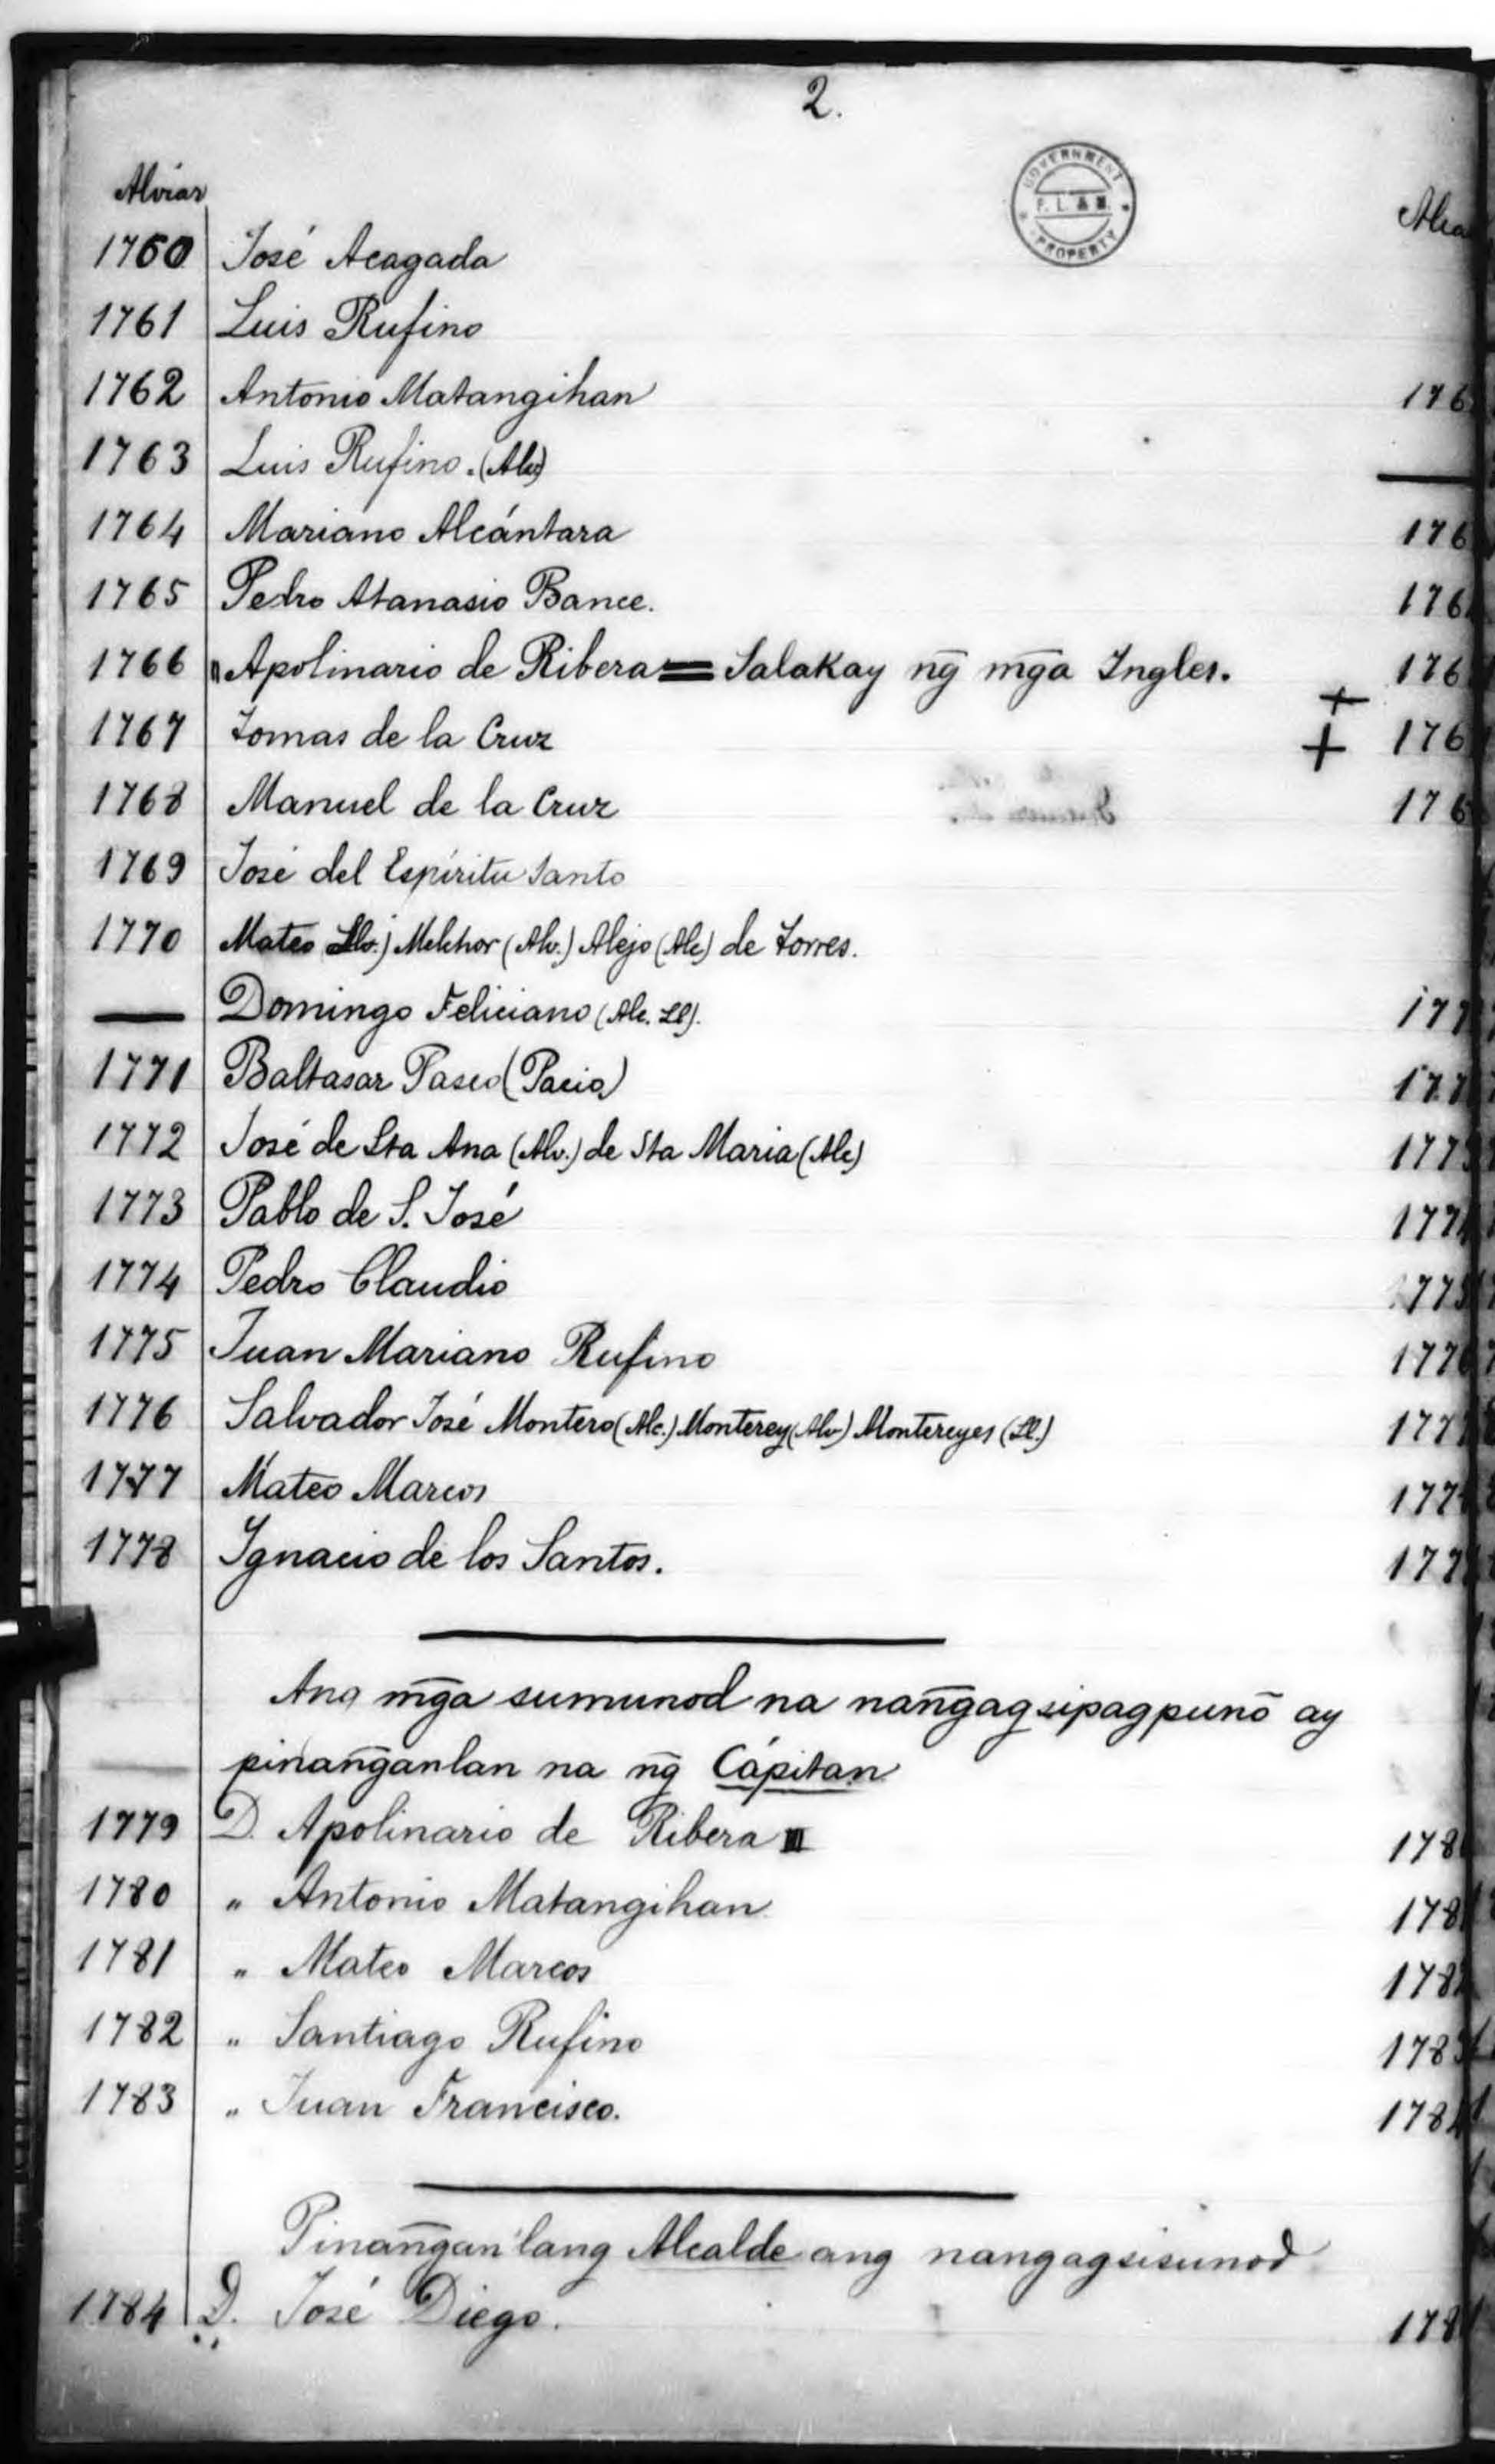 2.
GOVERNMENT
P. L. & M.
PROPERTY
Alviar
1760 José Acagada
1761 Luis Rufino
1762 Antonio Matangihan
1763 Luis Rufino. (Alv)
1764 Mariano Alcántara
1765 Pedro Atanasio Bance.
1766 " Apolinario de Ribera = Salakay ng̃ mg̃a Ingles.
1767 Tomas de la Cruz
1768 Manuel de la Cruz
1769 José del Espíritu Santo
1770 Mateo (Alv.) Melchor (Alv.) Alejo (Alc) de Torres.
— Domingo Feliciano (Alc. Ll).
1771 Baltasar Paseo (Pacio)
1772 José de Sta Ana (Alv.) de Sta Maria (Alc)
1773 Pablo de S. José
1774 Pedro Claudio
1775 Juan Mariano Rufino
1776 Salvador José Montero (Alc.) Monterey (Alv) Montereyes (Ll.)
1777 Mateo Marcos
1778 Ignacio de los Santos.
Ang mg̃a sumunod na nang̃agsipagpunō ay
pinang̃anlan na ng̃ Cápitan
1779 D. Apolinario de Ribera III
1780 " Antonio Matangihan
1781 " Mateo Marcos
1782 " Santiago Rufino
1783 " Juan Francisco.
Pinang̃anlang Alcalde ang nangagsisunod
1784 D. José Diego.